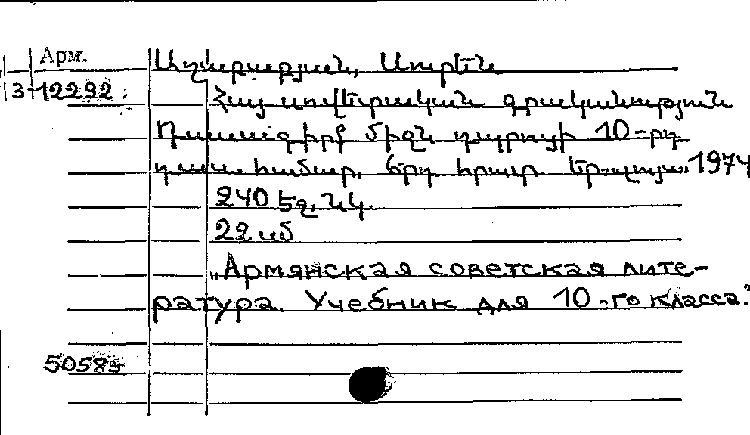 Арм.
Աղաբաբյան, Սուրեն
3-12292
Հայ սովետական գրականություն
Դասագիրք միջն դպրոցի 10-րդ
դաս. համար, 6րդ հրատ. Եր., Լույս, 1974
240 էջ, նկ.
22 սմ
„Армянская советская лите-
ратура. Учебник для 10-го класса."
50585